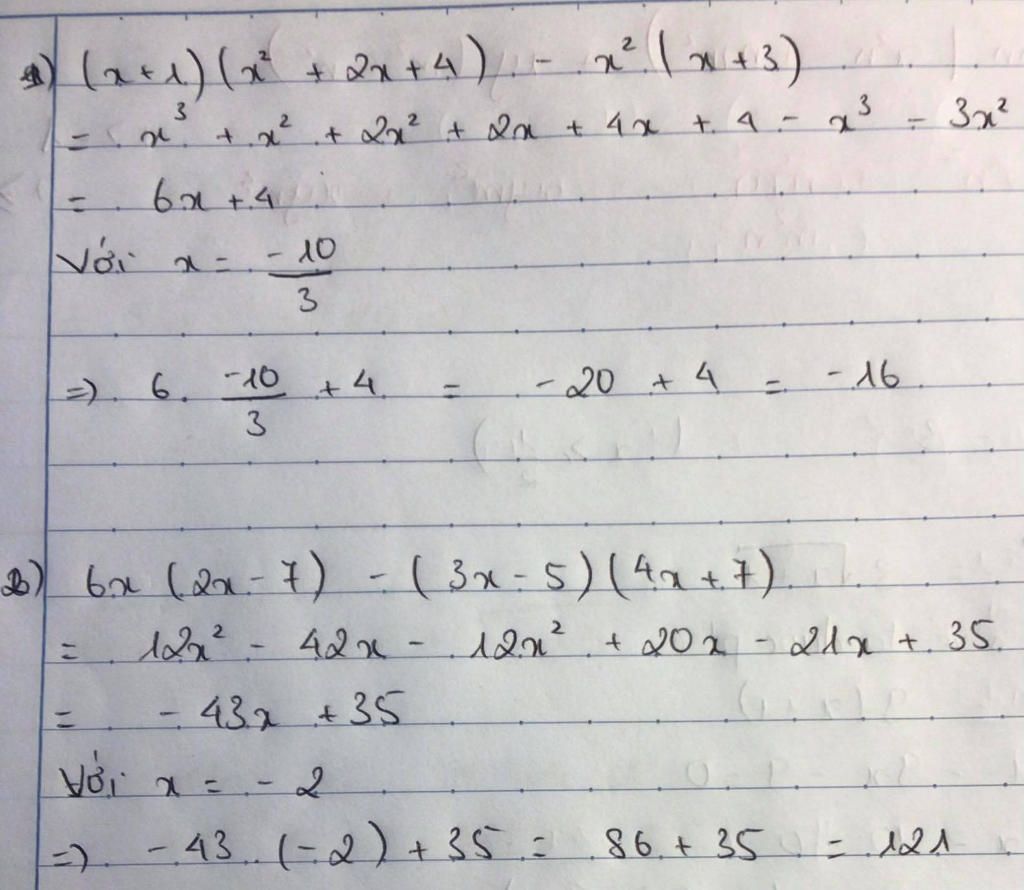 1) (x + 1)(x² + 2x + 4) - x²(x + 3)
= x³ + x² + 2x² + 2x + 4x + 4 - x³ - 3x²
= 6x + 4
Với x = -10/3
=> 6. -10/3 + 4 = -20 + 4 = -16
2) 6x (2x - 7) - (3x - 5)(4x + 7)
= 12x² - 42x - 12x² + 20x - 21x + 35
= -43x + 35
Với x = -2
=> -43. (-2) + 35 = 86 + 35 = 121